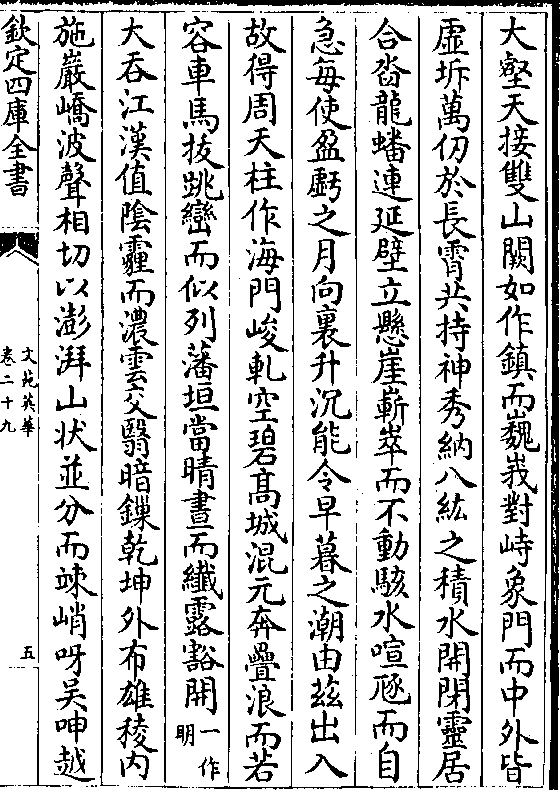 大壑天接雙山闕如作鎮而巍峩對峙象門而中外皆
虛坼萬仞於長霄共持神秀納八紘之積水開閉靈居
合沓龍蟠連延壁立懸崖嶄崒而不動駭水喧豗而自
急每使盈虧之月向裏升沉能令早暮之潮由茲出入
故得周天柱作海門峻軋空碧髙城混元奔疊浪而若
容車馬拔跳巒而似列藩垣當晴晝而纖露豁開一作明
大吞江漢值陰霾而濃雲交翳暗鏁乾坤外布雄稜内
施巖嶠波聲相切以澎湃山狀並分而竦峭呀吴呻越
欽定四庫全書
文苑英華
卷二十九
五